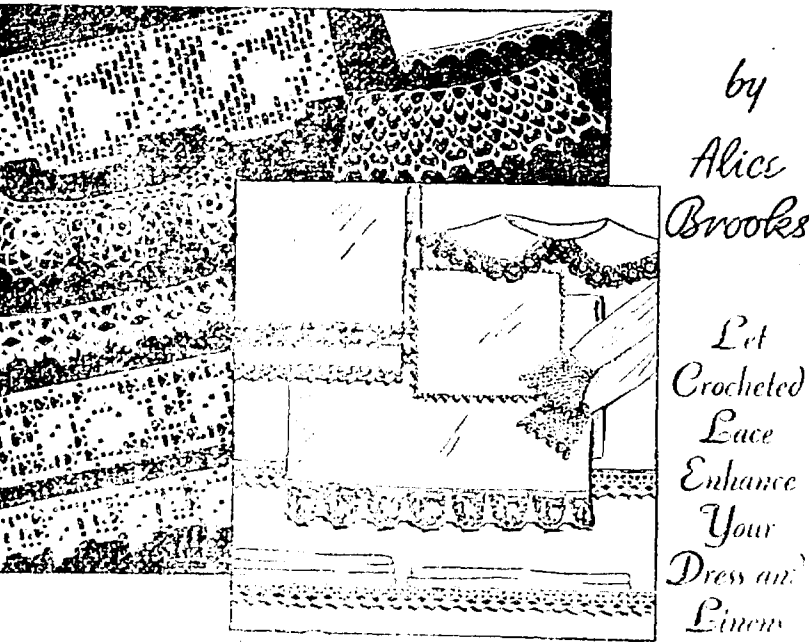 by
Alice
Brooks
Let
Crocheted
Lace
Enhance
Your
Dress and
Linens